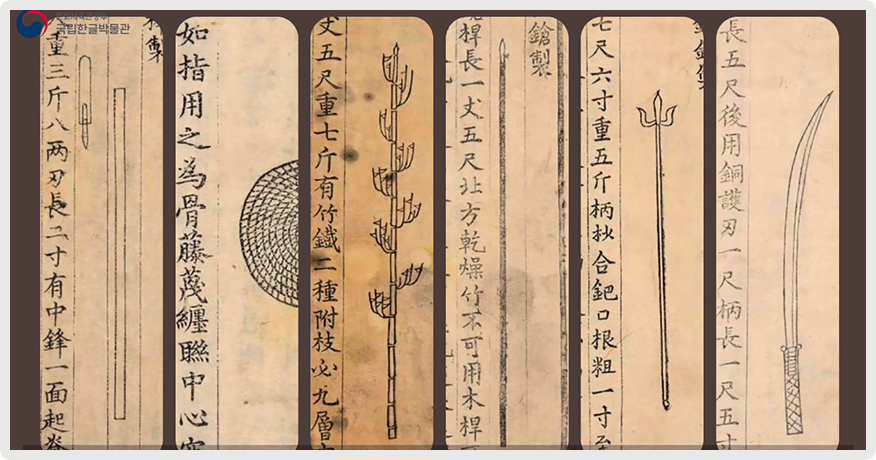 국립한글박물관
製
重三斤八两刃長二寸有中鋒一面起脊
如指用之為骨藤蔑纒聮中心
丈五尺重七斤有竹鐵二種附枝必九層
鎗製
桿長一丈五尺北方乾燥竹不可用木桿
七尺六寸重五斤柄杪合鈀口根粗一寸至
長五尺後用銅護刃一尺柄長一尺五寸